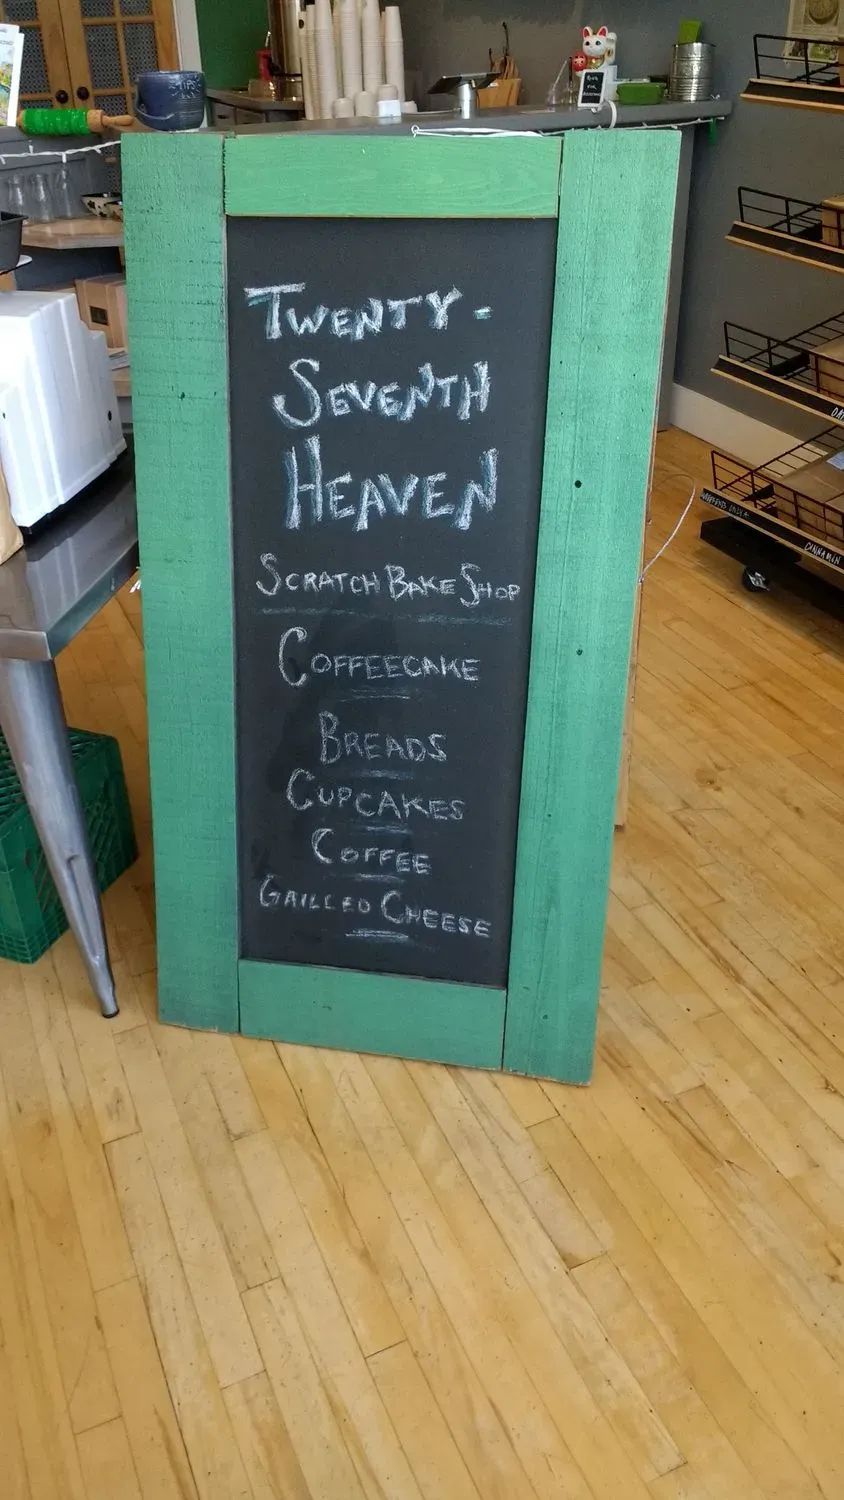 TIPS
TWENTY-
SEVENTH
HEAVEN
SCRATCH BAKE SHOP
COFFEECAKE
BREADS
CUPCAKES
COFFEE
GRILLED CHEESE
CINNAMON